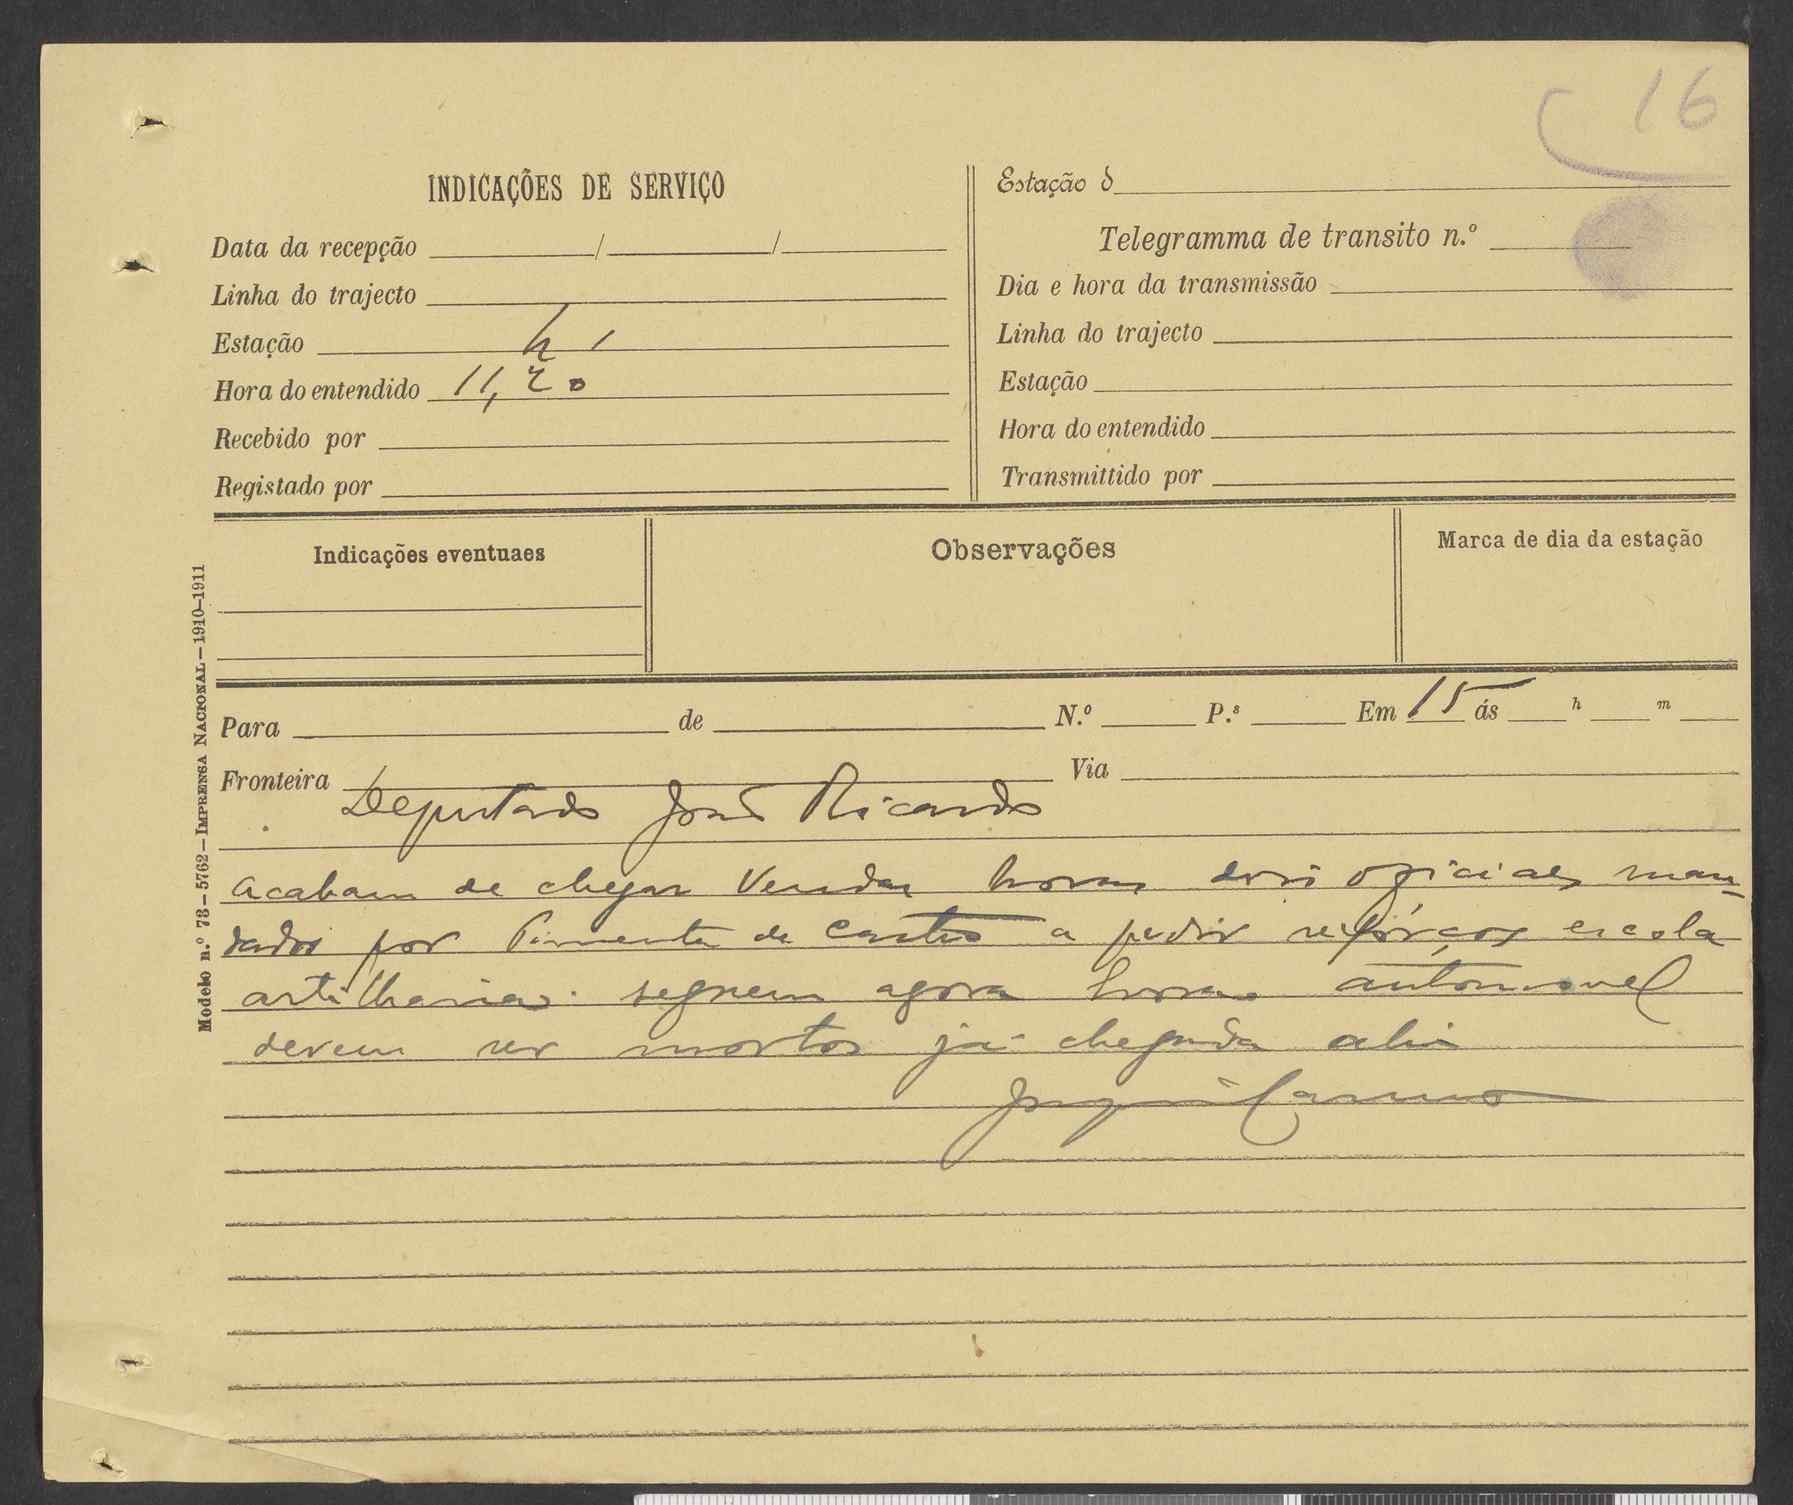 16
INDICAÇÕES DE SERVIÇO
Data da recepção / /
Linha do trajecto
Estação
Hora do entendido 11,20
Recebido por
Registado por
Estação d
Telegramma de transito n.º
Dia e hora da transmissão
Linha do trajecto
Estação
Hora do entendido
Transmittido por
Indicações eventuaes
Observações
Marca de dia da estação
Modelo n.º 73—5762—IMPRENSA NACIONAL—1910-1911
Para de N.º P.s Em 15 ás h m
Fronteira Via
Deputado João Ricardo
Acabam de chegar Vendas Novas dois oficiaes man-
dados por Pimenta de Castro a pedir reforços escola
artilharia. seguem agora automovel
devem ser mortos já chegada ahi